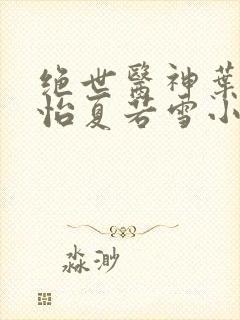 绝世醫神葉
怡夏若雪小
淼渺